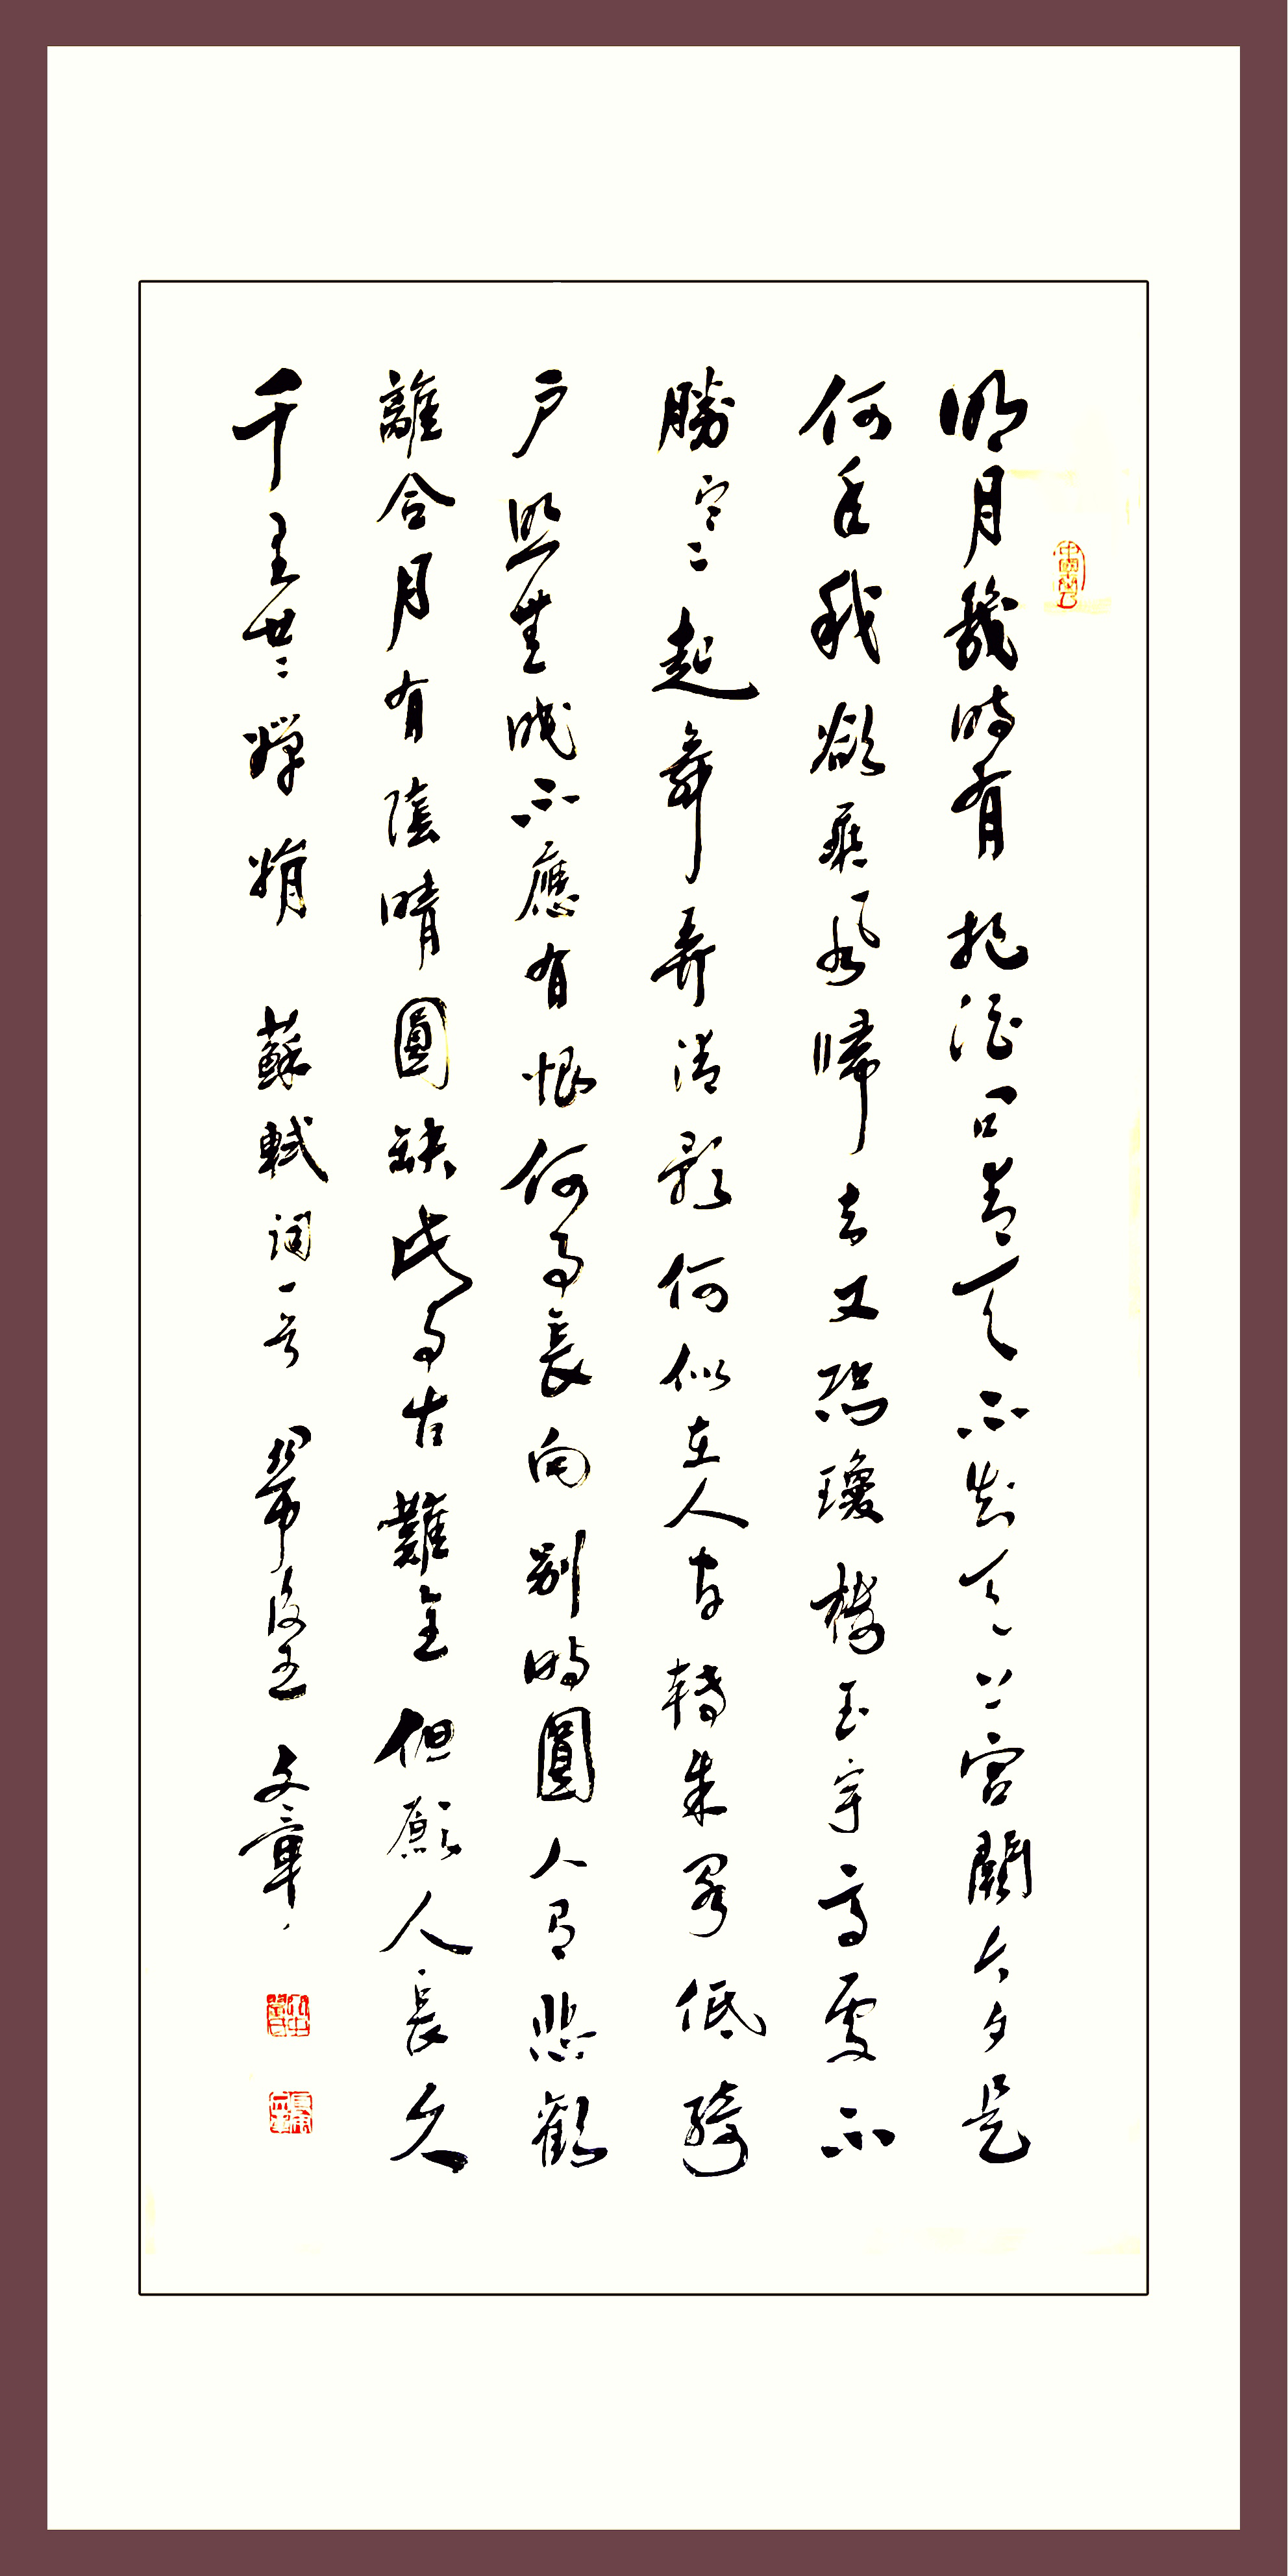 明月幾時有把酒問青天不知天上宮闕今夕是
何年我欲乘風歸去又恐瓊樓玉宇高處不
勝寒起舞弄清影何似在人間轉朱閣低綺
户照無眠不應有恨何事長向别時圓人有悲歡
離合月有陰晴圓缺此事古難全但願人長久
千里共嬋娟 蘇軾詞一首 文章